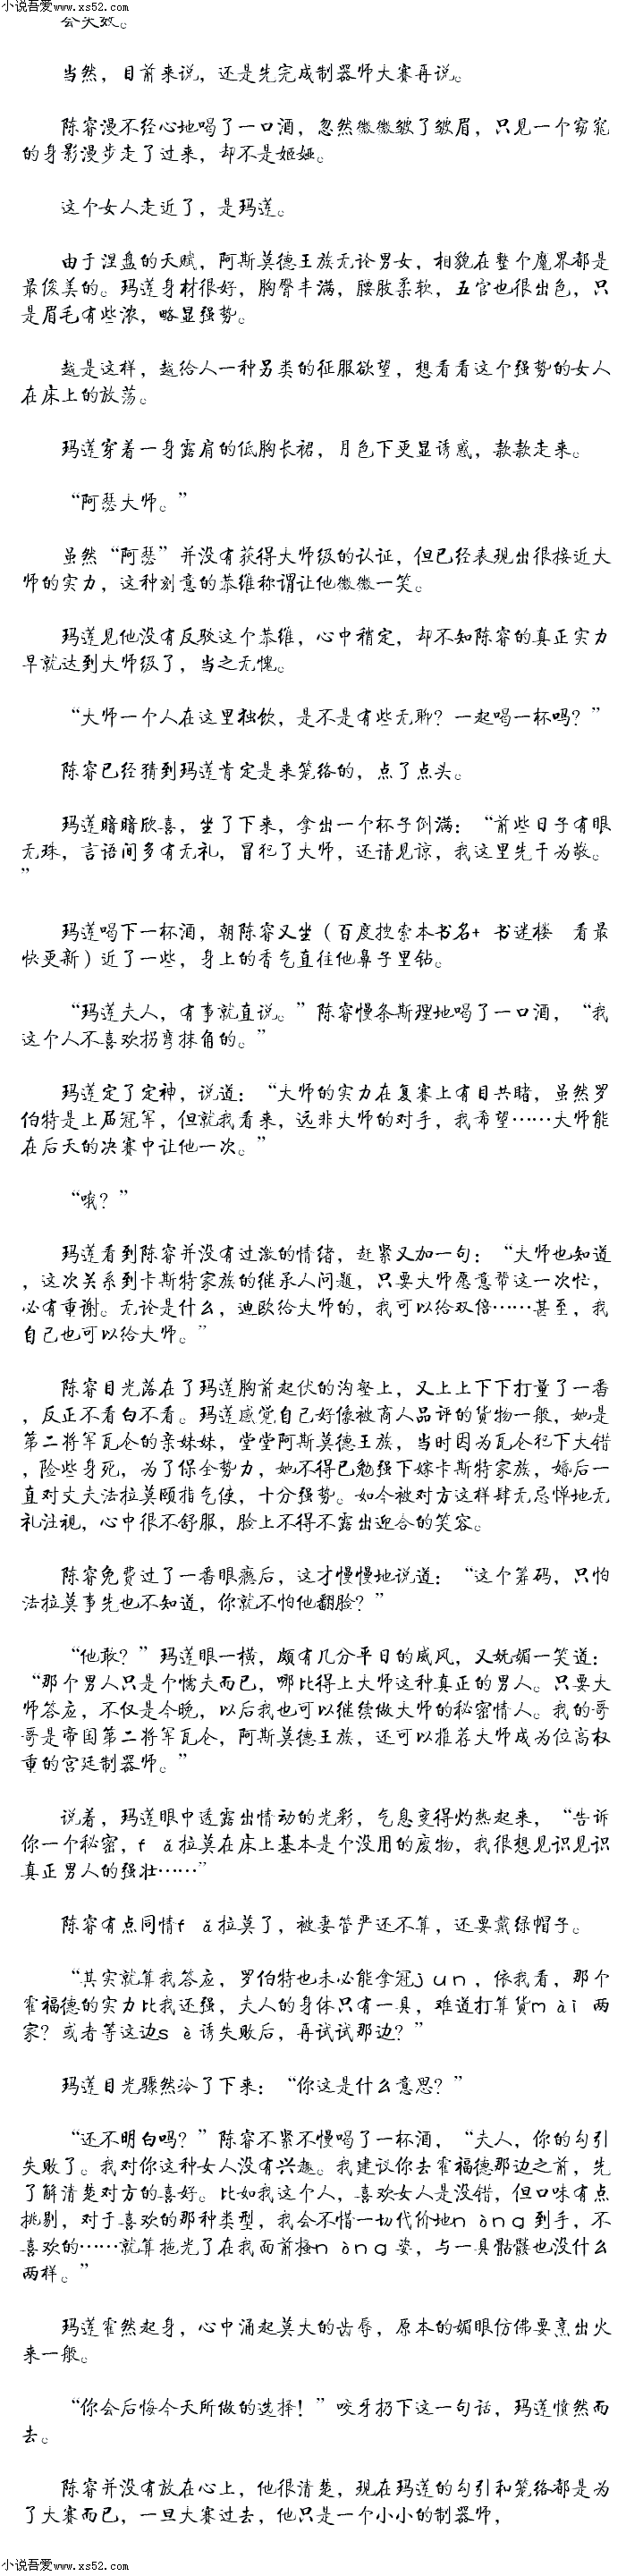 小说吾爱www.xs52.com
会失效。
当然，目前来说，还是先完成制器师大赛再说。
陈睿漫不经心地喝了一口酒，忽然微微皱了皱眉，只见一个窈窕
的身影漫步走了过来，却不是姬娅。
这个女人走近了，是玛莲。
由于涅盘的天赋，阿斯莫德王族无论男女，相貌在整个魔界都是
最俊美的。玛莲身材很好，胸臀丰满，腰肢柔软，五官也很出色，只
是眉毛有些浓，略显强势。
越是这样，越给人一种另类的征服欲望，想看看这个强势的女人
在床上的放荡。
玛莲穿着一身露肩的低胸长裙，月色下更显诱惑，款款走来。
“阿瑟大师。”
虽然“阿瑟”并没有获得大师级的认证，但已经表现出很接近大
师的实力，这种刻意的恭维称谓让他微微一笑。
玛莲见他没有反驳这个恭维，心中稍定，却不知陈睿的真正实力
早就达到大师级了，当之无愧。
“大师一个人在这里独饮，是不是有些无聊？一起喝一杯吗？”
陈睿已经猜到玛莲肯定是来笼络的，点了点头。
玛莲暗暗欣喜，坐了下来，拿出一个杯子倒满：“前些日子有眼
无珠，言语间多有无礼，冒犯了大师，还请见谅，我这里先干为敬。
”
玛莲喝下一杯酒，朝陈睿又坐（百度搜索本书名+ 书迷楼 看最
快更新）近了一些，身上的香气直往他鼻子里钻。
“玛莲夫人，有事就直说。”陈睿慢条斯理地喝了一口酒，“我
这个人不喜欢拐弯抹角的。”
玛莲定了定神，说道：“大师的实力在复赛上有目共睹，虽然罗
伯特是上届冠军，但就我看来，远非大师的对手，我希望……大师能
在后天的决赛中让他一次。”
“哦？”
玛莲看到陈睿并没有过激的情绪，赶紧又加一句：“大师也知道
，这次关系到卡斯特家族的继承人问题，只要大师愿意帮这一次忙，
必有重谢。无论是什么，迪欧给大师的，我可以给双倍……甚至，我
自己也可以给大师。”
陈睿目光落在了玛莲胸前起伏的沟壑上，又上上下下打量了一番
，反正不看白不看。玛莲感觉自己好像被商人品评的货物一般，她是
第二将军瓦仑的亲妹妹，堂堂阿斯莫德王族，当时因为瓦仑犯下大错
，险些身死，为了保全势力，她不得已勉强下嫁卡斯特家族，婚后一
直对丈夫法拉莫颐指气使，十分强势。如今被对方这样肆无忌惮地无
礼注视，心中很不舒服，脸上不得不露出迎合的笑容。
陈睿免费过了一番眼瘾后，这才慢慢地说道：“这个筹码，只怕
法拉莫事先也不知道，你就不怕他翻脸？”
“他敢？”玛莲眼一横，颇有几分平日的威风，又妩媚一笑道：
“那个男人只是个懦夫而已，哪比得上大师这种真正的男人。只要大
师答应，不仅是今晚，以后我也可以继续做大师的秘密情人。我的哥
哥是帝国第二将军瓦仑，阿斯莫德王族，还可以推荐大师成为位高权
重的宫廷制器师。”
说着，玛莲眼中透露出情动的光彩，气息变得灼热起来，“告诉
你一个秘密，fǎ拉莫在床上基本是个没用的废物，我很想见识见识
真正男人的强壮……”
陈睿有点同情fǎ拉莫了，被妻管严还不算，还要戴绿帽子。
“其实就算我答应，罗伯特也未必能拿冠jun，依我看，那个
霍福德的实力比我还强，夫人的身体只有一具，难道打算货mài两
家？或者等这边sè诱失败后，再试试那边？”
玛莲目光骤然冷了下来：“你这是什么意思？”
“还不明白吗？”陈睿不紧不慢喝了一杯酒，“夫人，你的勾引
失败了。我对你这种女人没有兴趣。我建议你去霍福德那边之前，先
了解清楚对方的喜好。比如我这个人，喜欢女人是没错，但口味有点
挑剔，对于喜欢的那种类型，我会不惜一切代价地nòng到手，不
喜欢的……就算拖光了在我面前搔nòng姿，与一具骷髅也没什么
两样。”
玛莲霍然起身，心中涌起莫大的齿辱，原本的媚眼仿佛要烹出火
来一般。
“你会后悔今天所做的选择！”咬牙扔下这一句话，玛莲愤然而
去。
陈睿并没有放在心上，他很清楚，现在玛莲的勾引和笼络都是为
了大赛而已，一旦大赛过去，他只是一个小小的制器师，
小说吾爱www.xs52.com